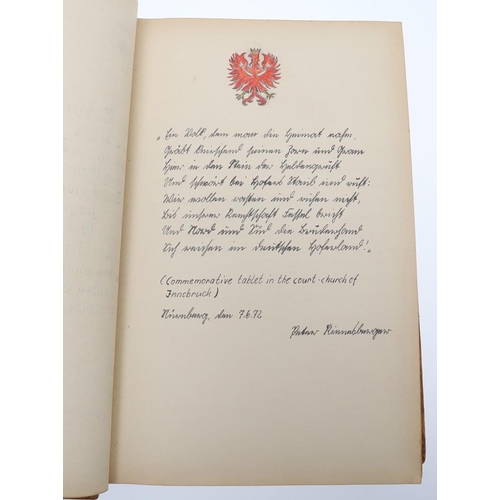 „Ein Volk, dem man die Heimat nahm,
Gräbt knirschend seinen Zorn und Gram
Hier in den Stein der Heldengruft
Und schwört bei Hofers Staub und ruft:
Wir wollen rasten und ruhen nicht,
Bis unsrer Knechtschaft Fessel bricht
Und Nord und Süd die Bruderhand
Sich reichen im deutschen Hoferland!“
(Commemorative tablet in the court-church of
Innsbruck)
Nürnberg, den 7.6.72
Peter